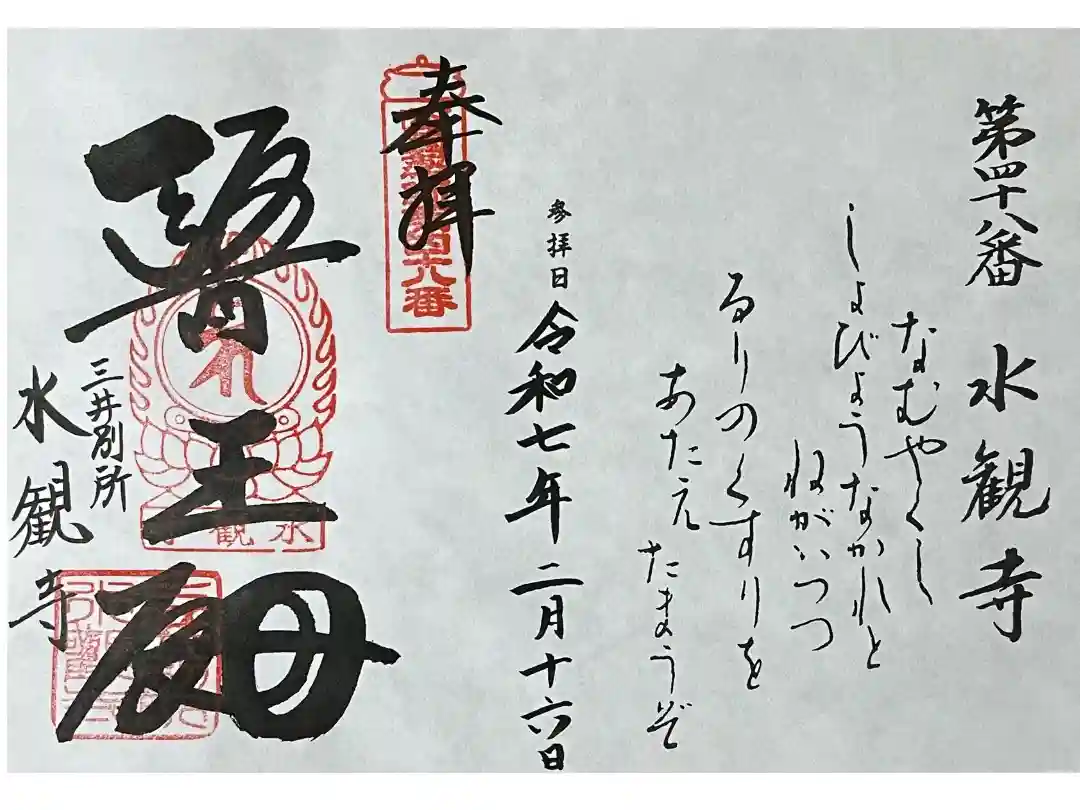 第四十八番 水観寺
なむやくし
しよびようなかれと
ねがいつつ
るりのくすりを
あたえ たまうぞ
参拝日 令和七年二月十六日
奉拝
四十八番
醫王殿
水観寺
三井別所
水観寺